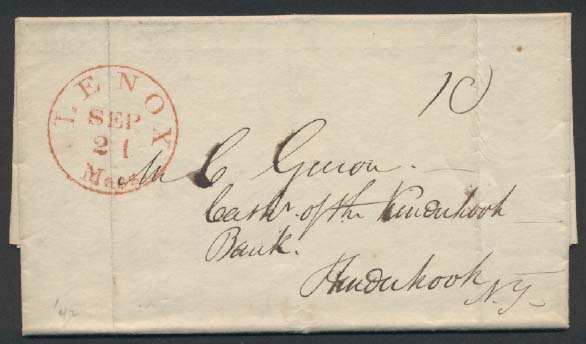 LENOX
SEP
21
Mass.
10
Mr C Guion.
Cashr. of the Kinderhook
Bank.
Kinderhook
N.Y.